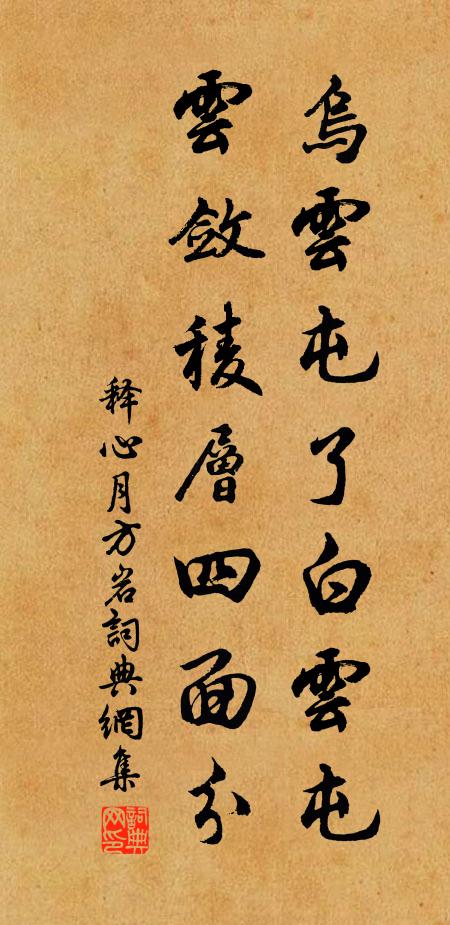 烏雲屯了白雲屯
雲斂稜層四面分
释心月方岩詞典網集
詞典网印